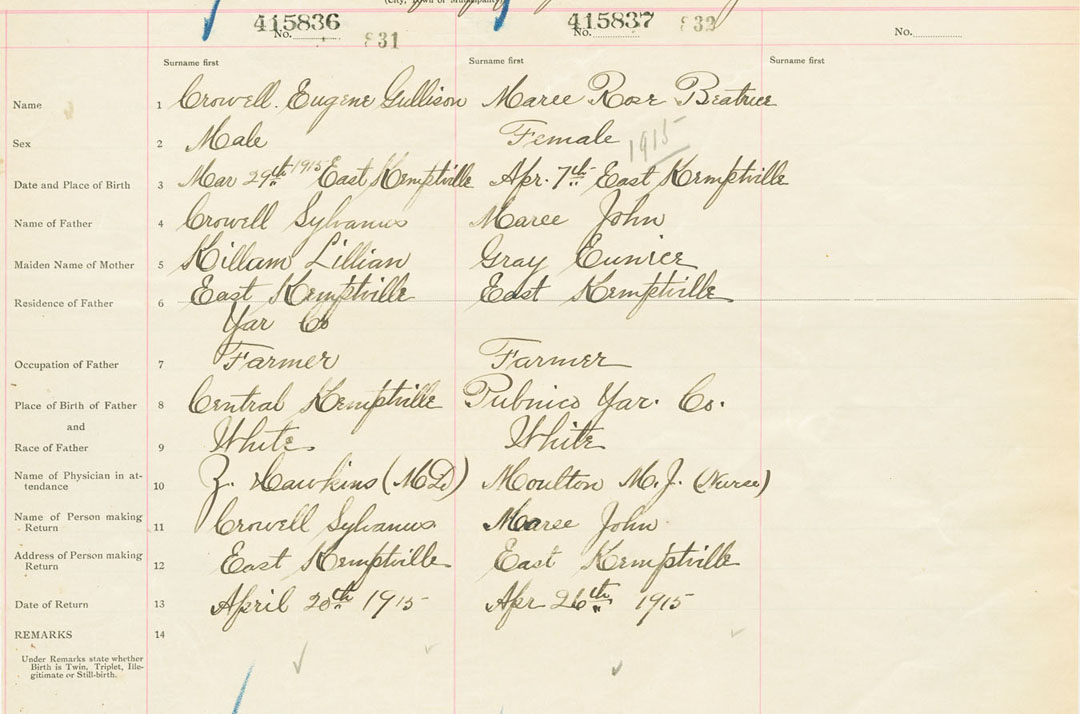 (City, Town or Municipality)
415836 415837
No. 831 No. 832 No.
Surname first Surname first Surname first
Name 1 Crowell. Eugene Gullison Maree Rose Beatrice
Sex 2 Male Female 1915
Date and Place of Birth 3 Mar 29th 1915 East Kemptville Apr. 7th East Kemptville
Name of Father 4 Crowell Sylvanus Maree John
Maiden Name of Mother 5 Killam Lillian Gray Eunice
Residence of Father 6 East Kemptville East Kemptville
Yar Co
Occupation of Father 7 Farmer Farmer
Place of Birth of Father 8 Central Kemptville Pubnico Yar. Co.
and
Race of Father 9 White White
Name of Physician in at-
tendance 10 Z. Hawkins (MD) Moulton M.J. (Nurse)
Name of Person making
Return 11 Crowell Sylvanus Maree John
Address of Person making
Return 12 East Kemptville East Kemptville
Date of Return 13 April 20th 1915 Apr 26th 1915
REMARKS 14
Under Remarks state whether
Birth is Twin, Triplet, Ille-
gitimate or Still-birth.